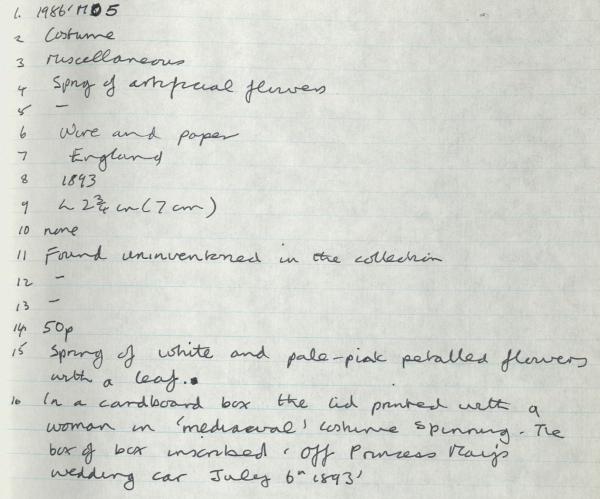 1. 1986'M05
2 Costume
3 Miscellaneous
4 Sprig of artificial flowers
5 –
6 Wire and paper
7 England
8 1893
9 L 2¾ in (7 cm)
10 none
11 Found uninventoried in the collection
12 –
13 –
14 50p
15 Sprig of white and pale-pink petalled flowers
with a leaf.
16 In a cardboard box the lid printed with a
woman in 'mediaeval' costume spinning. The
box of box inscribed 'Off Princess May's
wedding car July 6th 1893'